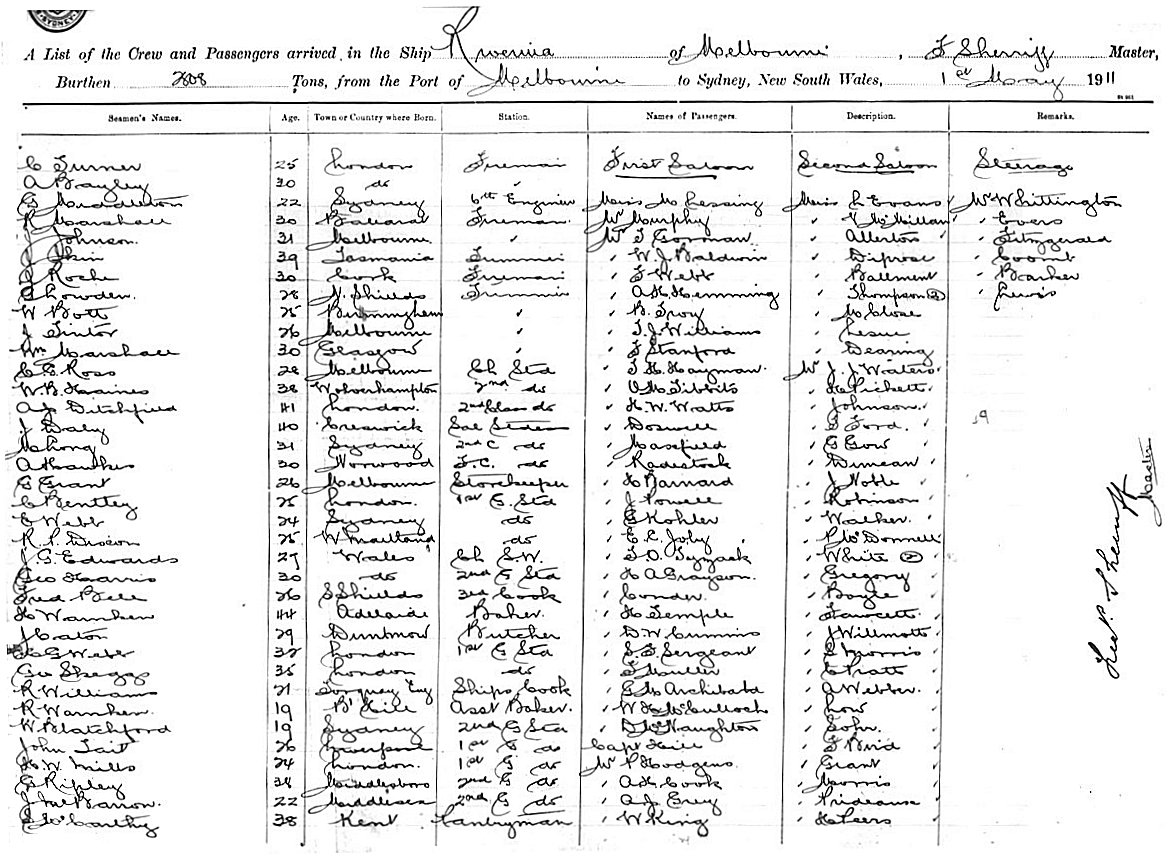 SYDNEY
A List of the Crew and Passengers arrived in the Ship of Melbourne, F Sherriff Master,
Burthen 2808 Tons, from the Port of Melbourne to Sydney, New South Wales, 1st May 1911
Seamen's Names. Age. Town or Country where Born. Station. Names of Passengers. Description. Remarks.
C Turner 25 London Fireman First Saloon Second Saloon Steerage
A Bayley 30 do "
G Middleton 22 Sydney 6th Engineer Miss M Lessing Miss L Evans Mr Whittington
R Marshall 30 Ballarat Fireman Mr Murphy " V McMillan " Evers
J Johnson 31 Melbourne " Mr T Gorman " Allerton " Fitzgerald
J 39 Tasmania Trimmer " W. J. Baldwin " Diprose " Coomb
D Roche 30 Cook Fireman " F Webb " Ballment " Barker
C Lowden 28 N. Shields Trimmer " A H Hemming " Thompson (2) " Lewis
W Bott 25 Birmingham " " B. Troy " McClose
J Tintor 26 Melbourne " " T. J. Williams "
Wm Marshall 30 Glasgow " " F Stanford " Dearing
C. G. Ross 28 Melbourne Ch Std " T. H. Hayman Mr J. J. Waters
W. B. Haines 38 Wolverhampton 2nd do " V M Tibbits " H Pickett
A J Ditchfield 41 London 2nd Class do " H. W. Watts " Johnson
J Daly 40 Creswick " Doswell " G Ford
M Long 31 Sydney 2nd C do " Masefield " G Gow
A Hawkes 30 Norwood F. C. do " Radestock " Duncan
G Grant 26 Melbourne Storekeeper " H Barnard " J Noble
C Bentley 25 London 1st G. Std " J Powell " Robinson
E Webb 24 Sydney do " G Kohler " Walker
R. P. Dixon 25 W. Maitland do " E. C. Joby " P McDonnell
J. G. Edwards 27 Wales Ch S. W. " T. O. Tyzzack " White (2)
Geo Harris 30 do 2nd G Std " H A Grayson " Gregory
Fred Bell 26 S Shields 3rd Cook " Conder " Boyle
H Warnken 44 Adelaide Baker " H Temple " Fawcett
J Caton 29 Dunmow Butcher " D. W. Cummins " J Willmott
G Webb 32 London 1st G Std " S. F. Sergeant " R Morris
Geo Skeggs 35 London do " F Muller " C Pratt
R Williams 21 Torquay Eng Ships Cook " G M Archibald " A Webber
R Warnken 19 B' Hill Asst Baker " W H McCulloch " Low
W Blatchford 19 Sydney 2nd G Std " D McNaughton " John
John Tait 26 Liverpool 1st G do Capt Hill " F Bird
H. W. Mills 24 London 1st G do Mr P Hodgens " Grant
G Ripley 34 Middlesboro 2nd G do " A H Cook " Morris
J McBarron 22 Middlesex 2nd G do " A J Grey " Prideaux
S McCarthy 38 Kent Pantryman " W King " H Leers
19
Fredk. P. Sherriff
Master